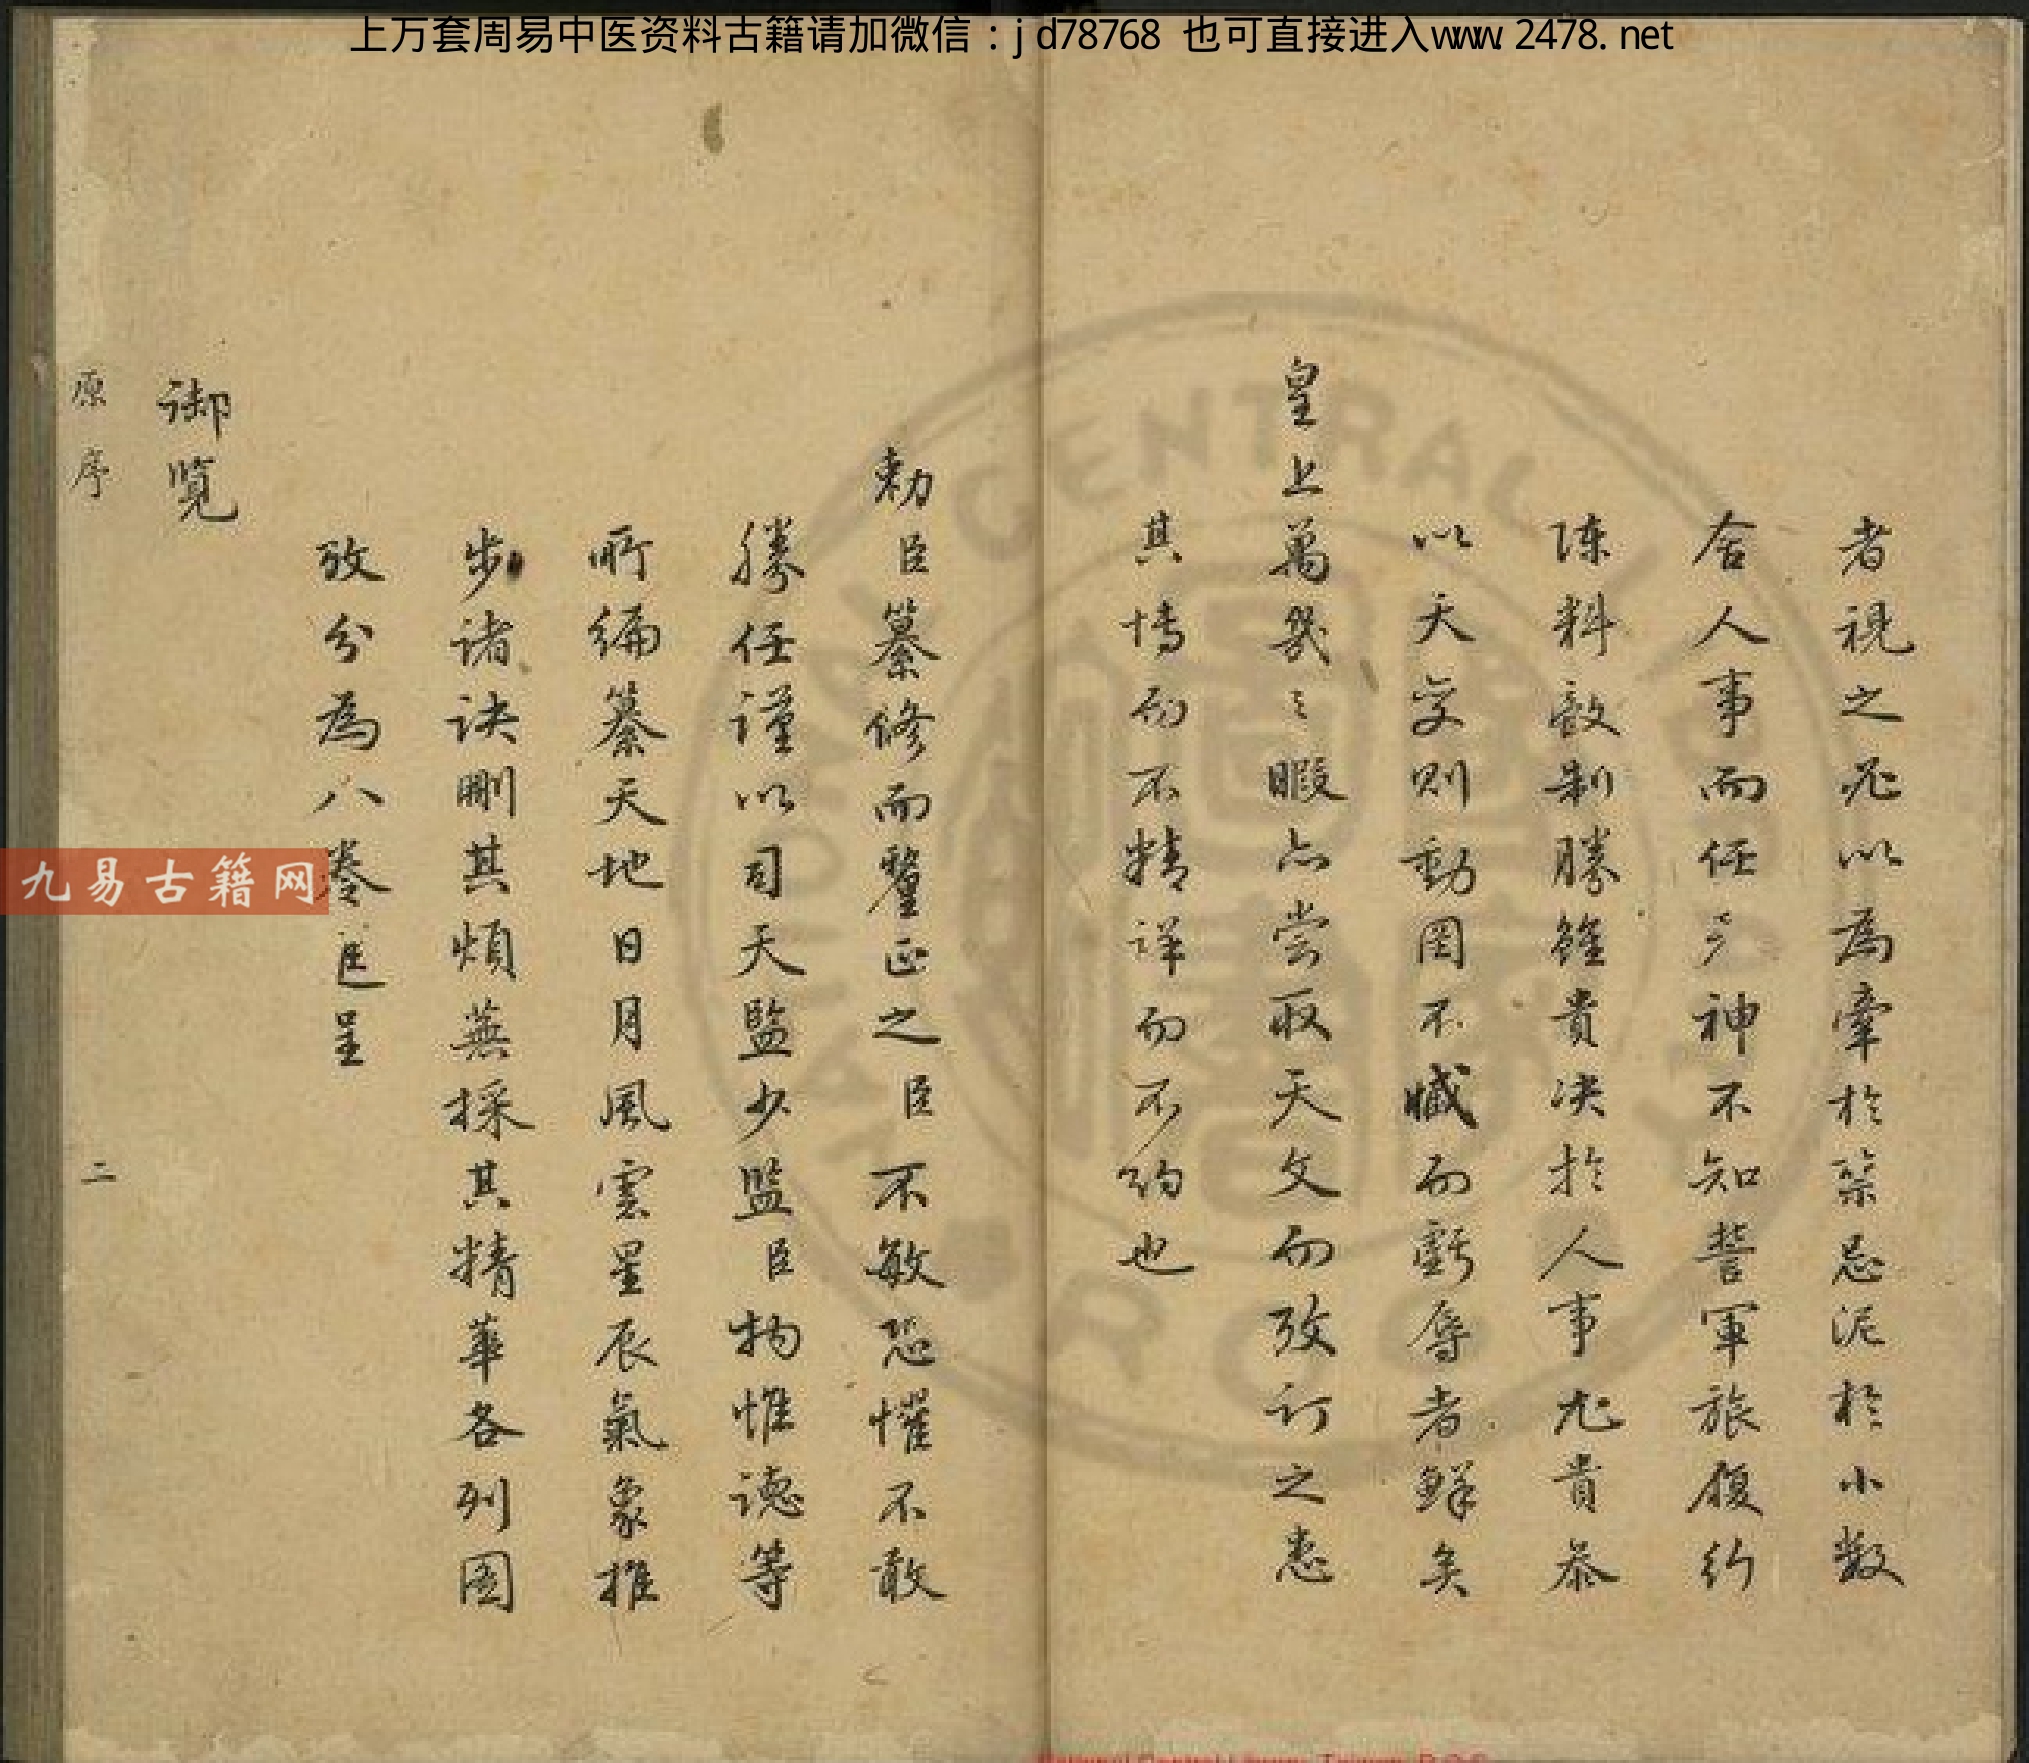 上万套周易中医资料古籍请加微信：jd78768 也可直接进入www.2478.net
者視之必以為牽於禁忌泥於小數
舍人事而任鬼神不知誓軍旅復行
陳料敵制勝雖貴決於人事尤貴恭
以天変則動罔不臧而虧辱者鮮矣
皇上萬幾之暇亦嘗取天文而攷訂之患
其博而不精詳而不約也
勅臣纂修而釐正之臣不敏恐懼不敢
勝任謹以司天監少監臣杓惟德等
所編纂天地日月風雲星辰氣象推
步諸訣刪其煩蕪採其精華各列圖
攷分為八卷進呈
御覧
原序
二
九易古籍网
National Central Library, Taiwan, R.O.C